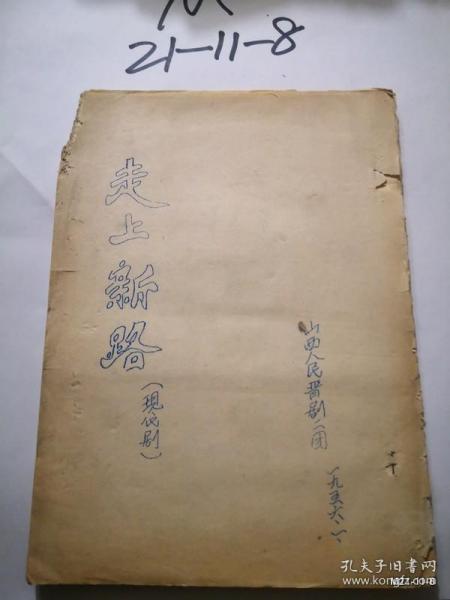 21-11-8
走上新路
（现代剧）
山西人民晋剧二团
一九五六.一.
孔夫子旧书网
www.kongfz.com